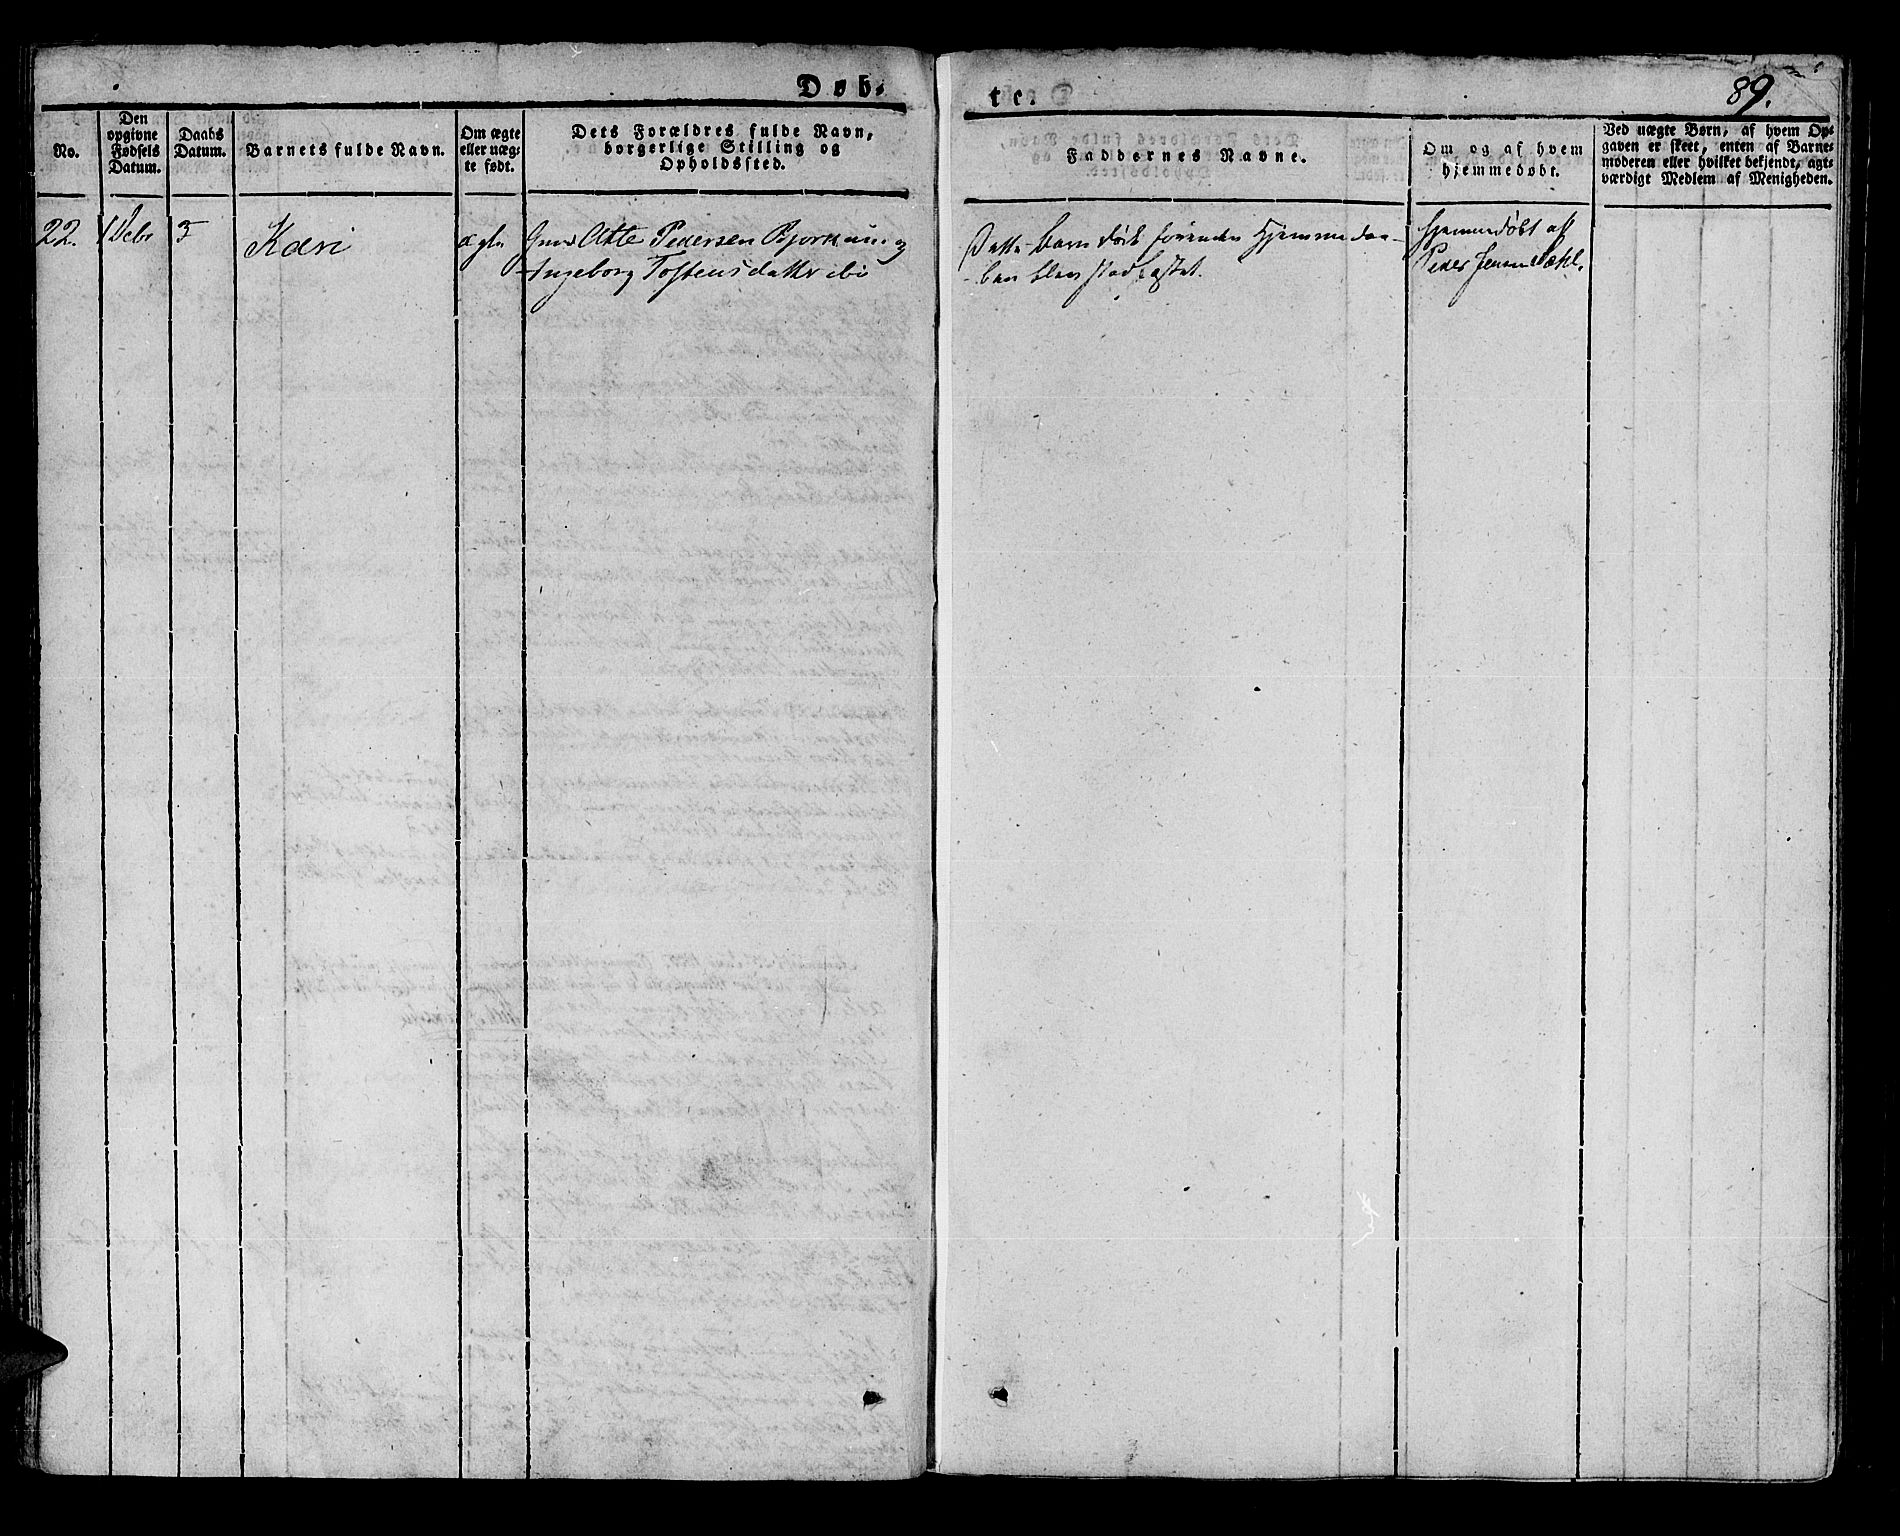 Døb-
te.
89.
No.
Den
opgivne
Fødsels
Datum.
Daabs
Datum.
Barnets fulde Navn.
Om ægte
eller uæg-
te født.
Dets Forældres fulde Navn,
borgerlige Stilling og
Opholdssted.
Faddernes Navne.
Om og af hvem
hjemmedøbt.
Ved uægte Børn, af hvem Op-
gaven er skeet, enten af Barne-
moderen eller hvilket bekjendt, agt-
værdigt Medlem af Menigheden.
22.
Kari
Pedersen
Ingeborg Tostensdatter ibi
Dette Barn førend Hjemmedaa-
ben blev stadfæstet.
Hjemmedøbt af
Peder